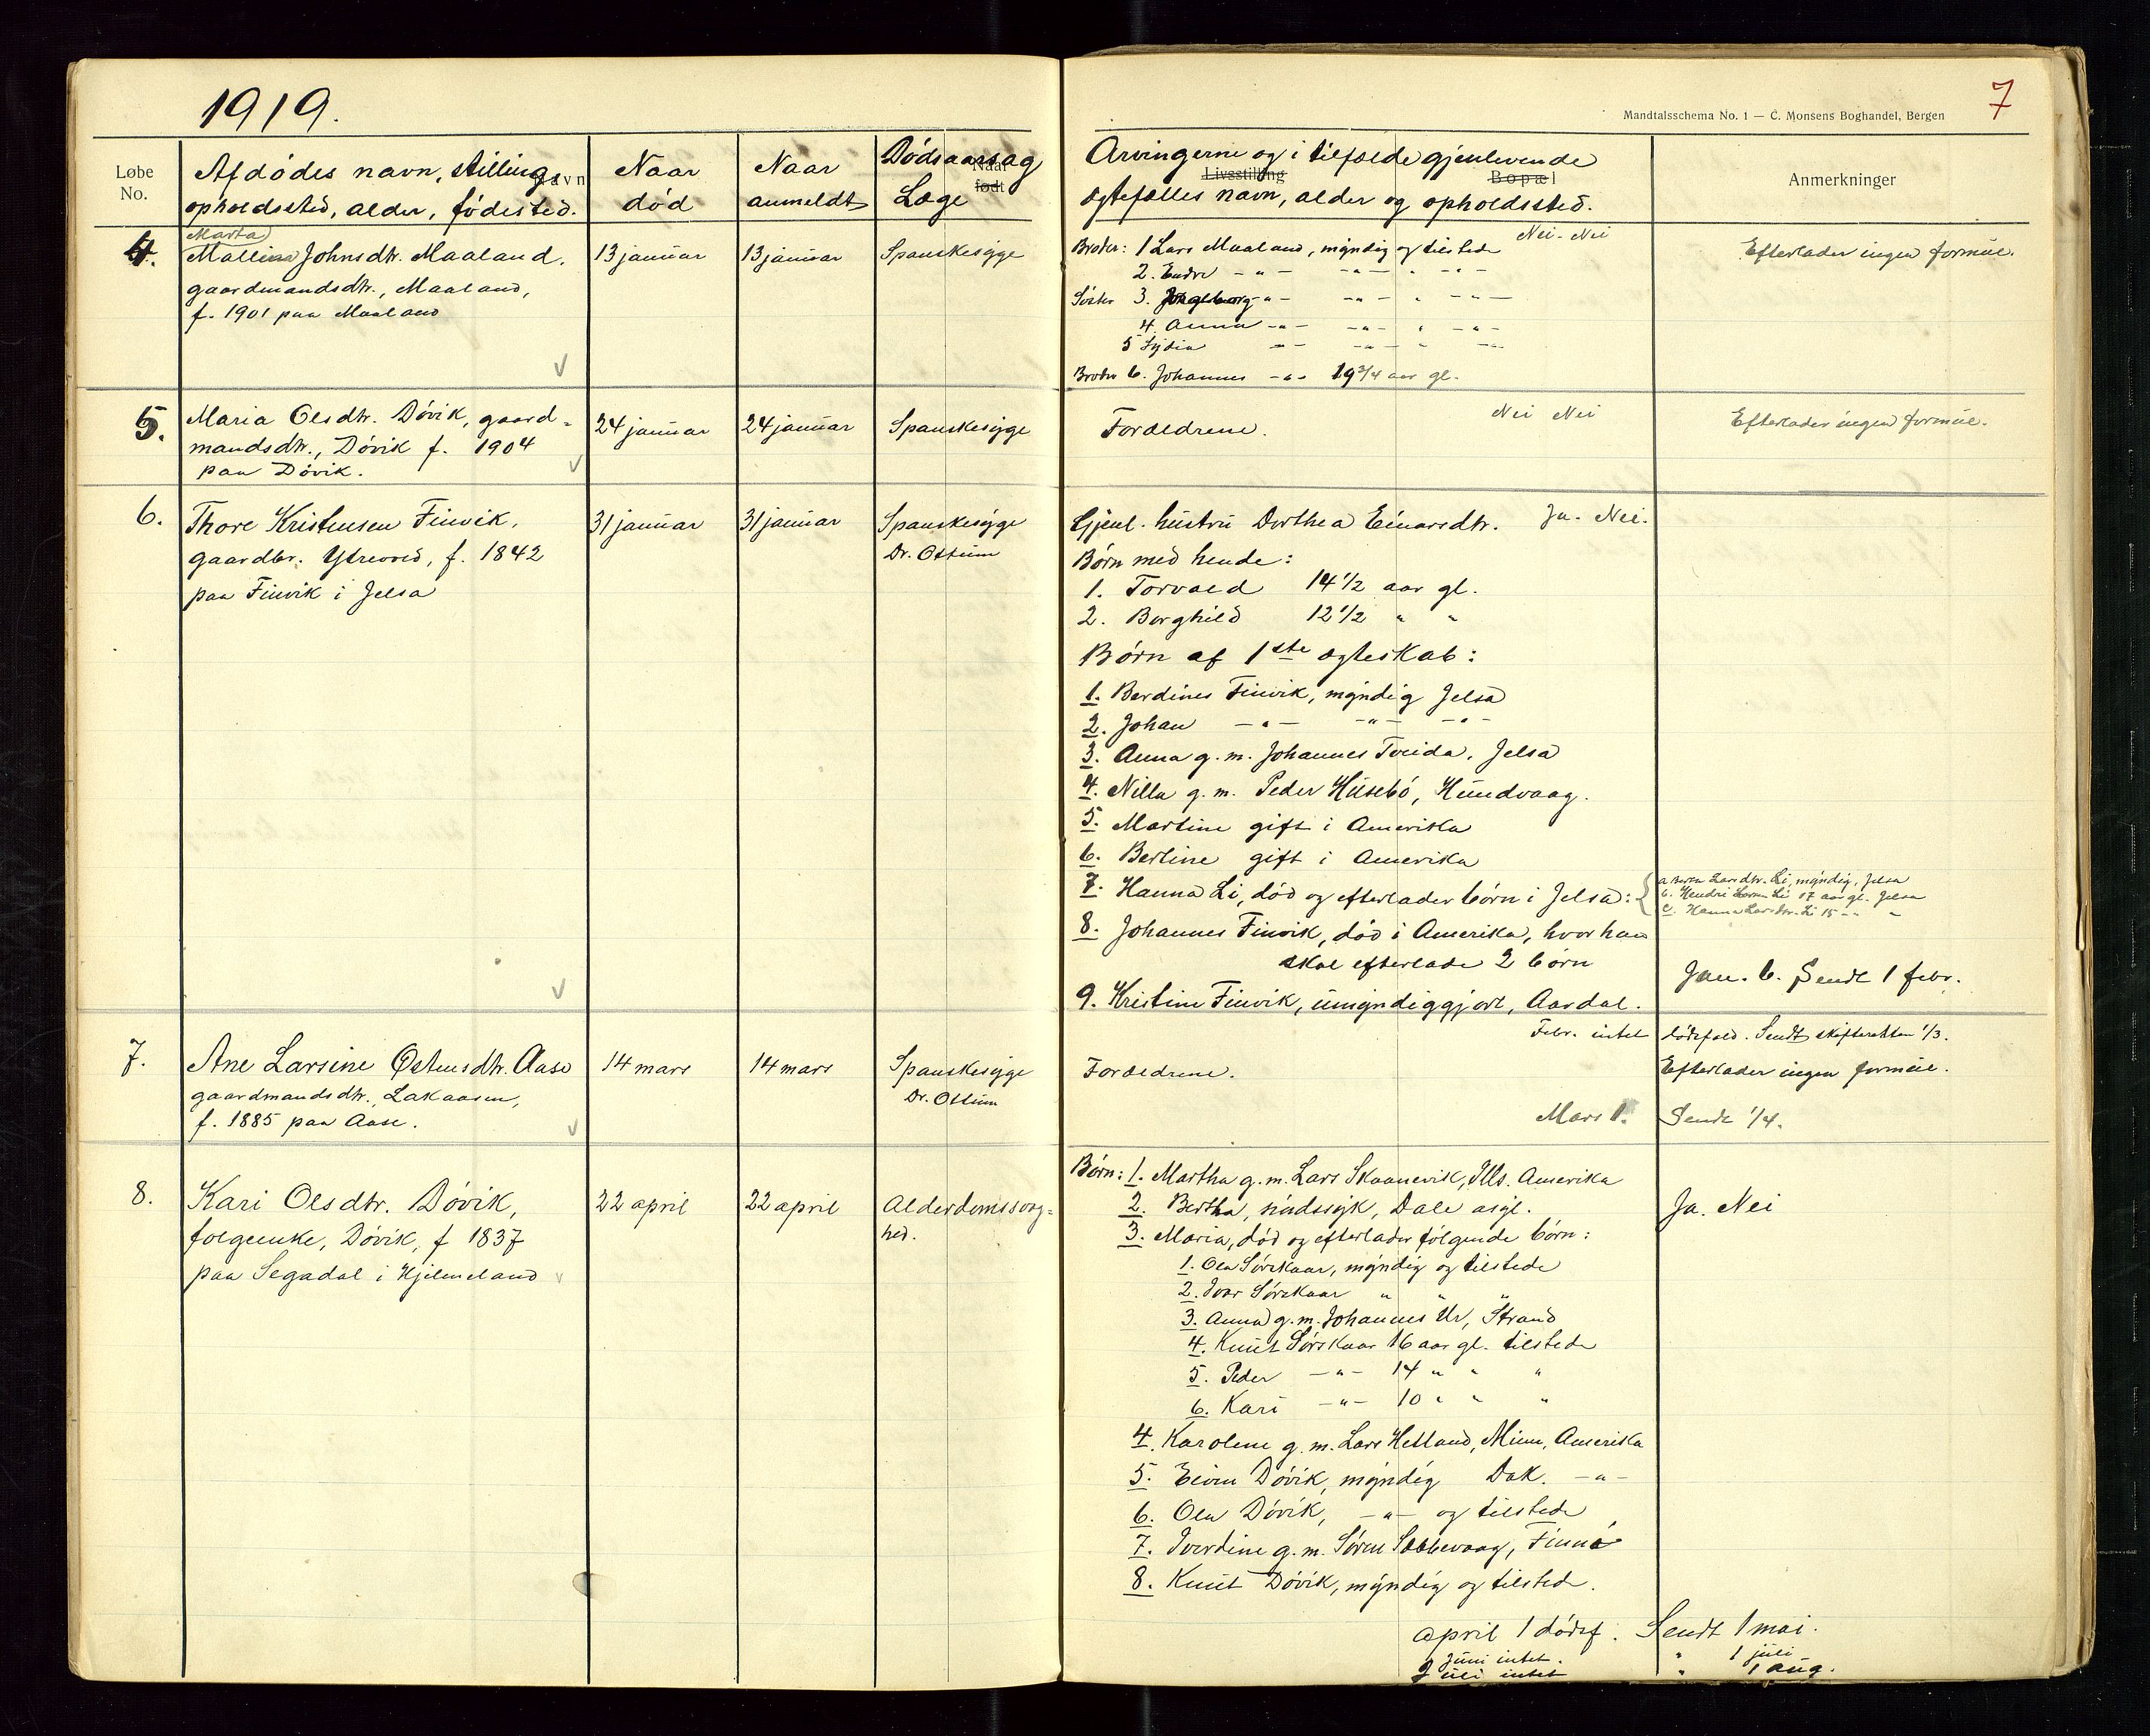 1919.
7
Mandtalsschema No. 1 — C. Monsens Boghandel, Bergen
Løbe No.
Afdødes navn, stilling, Navn
opholdssted, alder, fødested.
Naar død
Naar anmeldt
Dødsaarsag Naar født
Læge
Arvingerne og i tilfælde gjenlevende
Livsstilling Bopæl
ægtefælles navn, alder og opholdssted.
Anmerkninger
4.
Marta
Johnsdtr. Maaland,
gaardmandsdtr., Maaland,
f. 1901 paa Maaland
13 januar
13 januar
Spanskesyge
Broder: 1 Lars Maaland, myndig og tilstede Nei - Nei
2. Endre -"- -"- " -"-
Søster 3. Ingeborg -"- -"- " -"-
4. Anna -"- -"- " -"-
5 Lydia -"- -"- " -"-
Broder 6. Johannes -"- 19 3/4 aar gl.
Efterlader ingen formue.
5.
Maria Olsdtr. Døvik, gaard-
mandsdtr., Døvik f. 1904
paa Døvik.
24 januar
24 januar
Spanskesyge
Forældrene.
Nei Nei
Efterlader ingen formue.
6.
Thore Kristensen Finvik,
gaardbr. Ytreviod, f. 1842
paa Finvik i Jelsa
31 januar
31 januar
Spanskesyge
Dr. Ottum
Gjenl. hustru Dorthea Einarsdtr. Ja. Nei.
Børn med hende:
1. Torvald 14 1/2 aar gl.
2. Borghild 12 1/2 " "
Børn af 1ste ægteskab:
1. Berdines Finvik, myndig Jelsa
2. Johan -"- -"- -"-
3. Anna g. m. Johannes Tveida, Jelsa
4. Nilla g. m. Peder Husebø, Hundvaag.
5. Martine gift i Amerika
6. Bertine gift i Amerika
7. Hanna Li, død og efterlader børn i Jelsa:
a Larsdtr. Li, myndig, Jelsa
b. Hendri Larsen Li 17 aar gl. Jelsa
c. Hanna Larsdtr. Li 15 -"- "
8. Johannes Finvik, død i Amerika, hvor han
skal efterlade 2 børn
9. Kristine Finvik, umyndiggjort, Aardal.
Jan. 6. Sendt 1 febr.
Febr. intet dødsfald. Sendt skifteretten 1/3.
7.
Ane Larsine Østensdtr. Aase
gaardmandsdtr. Lakaasen,
f. 1885 paa Aase.
14 mars
14 mars
Spanskesyge
Dr. Ottum
Forældrene.
Efterlader ingen formue.
Mars 1. Sendt 1/4.
8.
Kari Olsdtr. Døvik,
folgeenke, Døvik, f 1837
paa Segadal i Hjelmeland
22 april
22 april
Alderdomssvag-
hed.
Børn: 1. Martha g. m. Lars Skaanevik, Ills. Amerika
2. Bertha, sindssyk, Dale asyl.
3. Maria, død og efterlader følgende børn:
1. Ola Sørskaar, myndig og tilstede
2. Ivar Sørskaar " " "
3. Anna g. m. Johannes Ur, Strand
4. Knut Sørskaar 16 aar gl. tilstede
5. Peder -"- 14 " " "
6. Kari -"- 10 " " "
4. Karolene g. m. Lars Helland, Minn, Amerika
5. Eivin Døvik, myndig Dak. -"-
6. Ola Døvik, -"- og tilstede
7. Iverdine g. m. Søren Sæbbevaag, Finnø
8. Knut Døvik, myndig og tilstede.
Ja. Nei
april 1 dødsf. Sendt 1 mai.
Juni intet. " 1 juli
Juli intet " 1 aug.